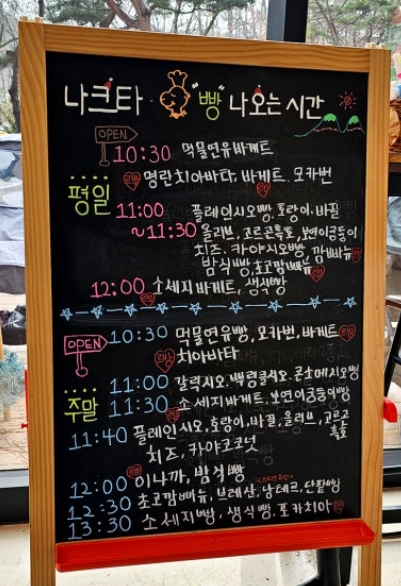 나크타 "빵" 나오는 시간
OPEN
10:30 먹물연유바게트
명란치아바타, 바게트, 모카번
평일
11:00 플레인시오빵, 호랑이, 바질
~11:30 올리브, 고르곤졸라, 보연이궁둥이
치즈, 카야시오빵, 깜빠뉴
밤식빵, 초코깜빠뉴
12:00 소세지바게트, 생식빵
OPEN
10:30 먹물연유빵, 모카번, 바게트
치아바타
주말
11:00 갈릭시오, 콘치즈시오빵
11:30 소세지바게트, 보연이궁둥이빵
11:40 플레인시오, 호랑이, 바질, 올리브, 고르곤
치즈, 카야코코넛
12:00 이나까, 밤식빵
12:30 초코깜빠뉴, 브레산, 낭테르, 단팥빵
13:30 소세지빵, 생식빵, 포카치아